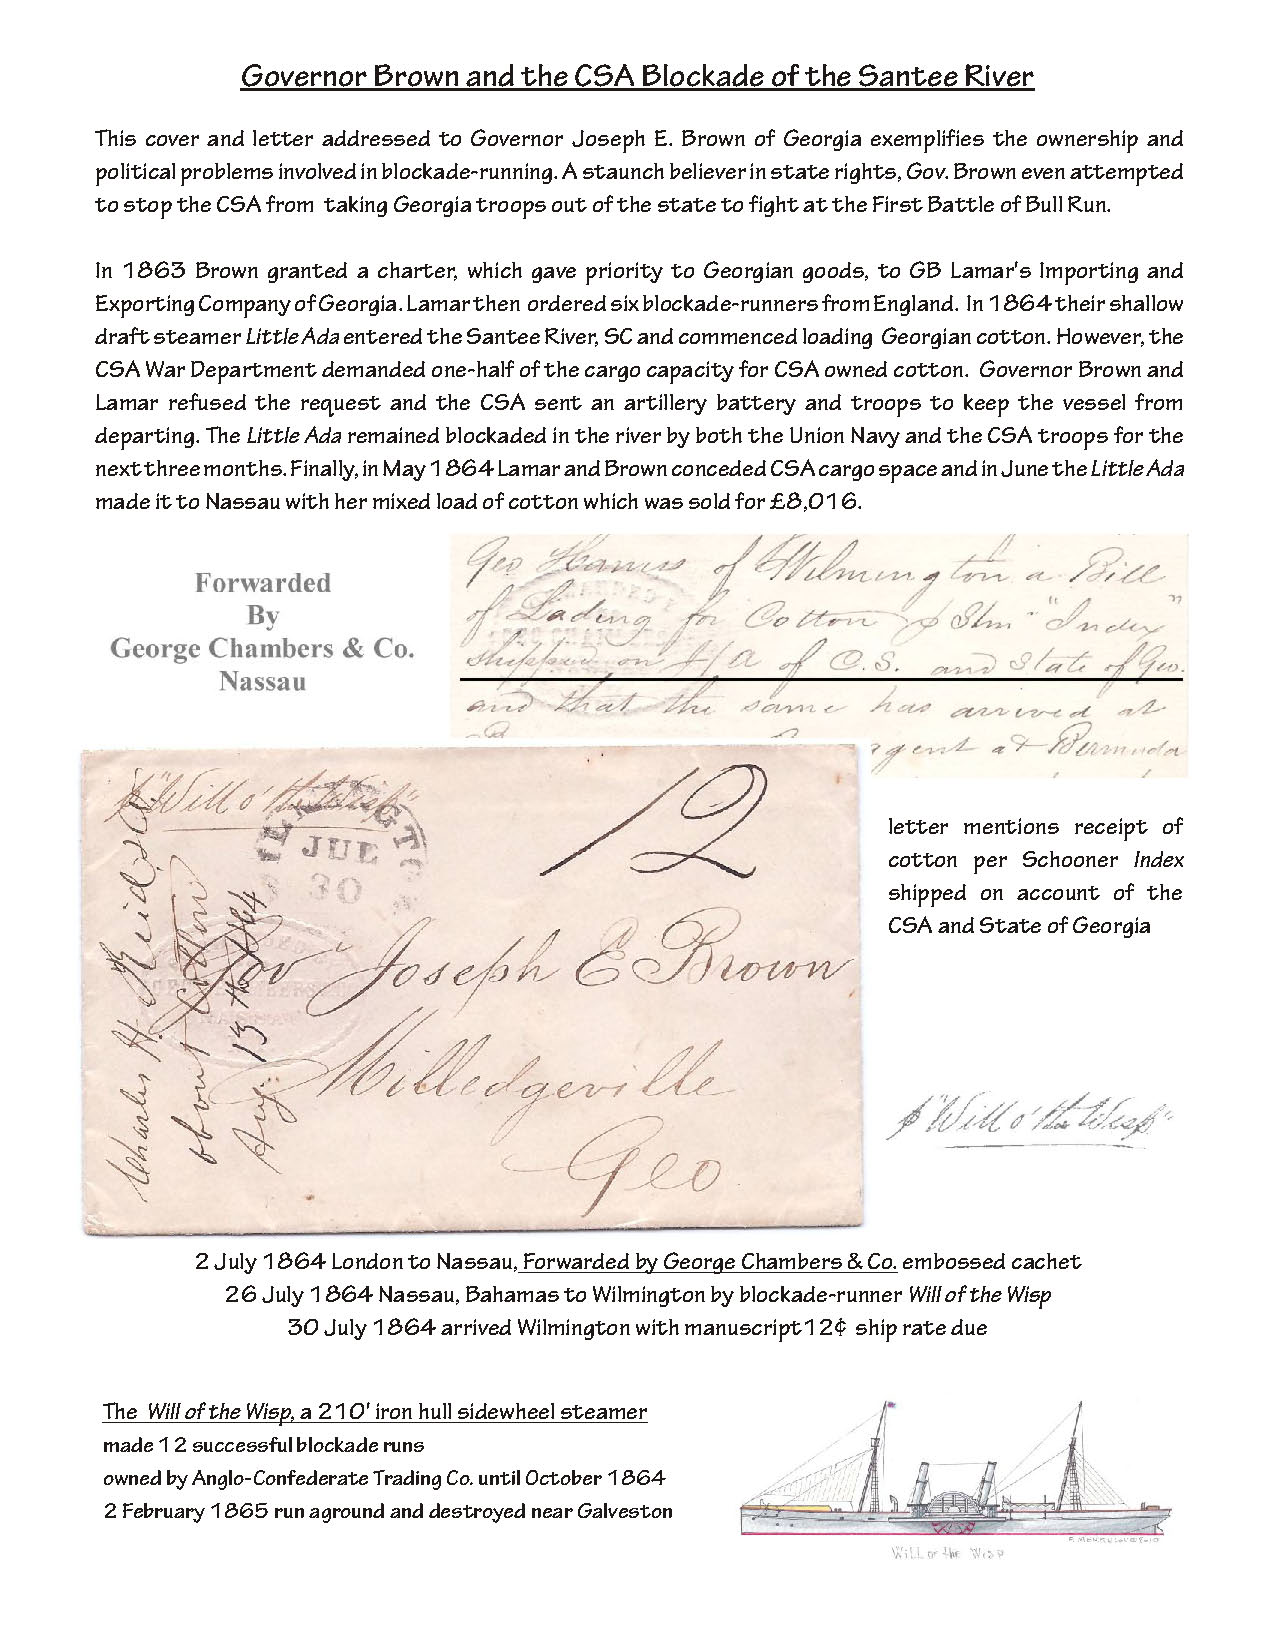 Governor Brown and the CSA Blockade of the Santee River
This cover and letter addressed to Governor Joseph E. Brown of Georgia exemplifies the ownership and
political problems involved in blockade-running. A staunch believer in state rights, Gov. Brown even attempted
to stop the CSA from taking Georgia troops out of the state to fight at the First Battle of Bull Run.
In 1863 Brown granted a charter, which gave priority to Georgian goods, to GB Lamar's Importing and
Exporting Company of Georgia. Lamar then ordered six blockade-runners from England. In 1864 their shallow
draft steamer Little Ada entered the Santee River, SC and commenced loading Georgian cotton. However, the
CSA War Department demanded one-half of the cargo capacity for CSA owned cotton. Governor Brown and
Lamar refused the request and the CSA sent an artillery battery and troops to keep the vessel from
departing. The Little Ada remained blockaded in the river by both the Union Navy and the CSA troops for the
next three months. Finally, in May 1864 Lamar and Brown conceded CSA cargo space and in June the Little Ada
made it to Nassau with her mixed load of cotton which was sold for £8,016.
Forwarded
By
George Chambers & Co.
Nassau
Geo Harriss of Wilmington a Bill
of Lading for Cotton p Stm "Index"
shipped on A/A of C.S. and State of Geo.
and that the same has arrived at
agent at Bermuda
p "Will o' the Wisp"
12
JUL
30
Gov Joseph E Brown
Milledgeville
Geo
Charles H. Reid & Co
about Cotton
Aug. 13th 1864
letter mentions receipt of
cotton per Schooner Index
shipped on account of the
CSA and State of Georgia
p "Will o' the Wisp"
2 July 1864 London to Nassau, Forwarded by George Chambers & Co. embossed cachet
26 July 1864 Nassau, Bahamas to Wilmington by blockade-runner Will of the Wisp
30 July 1864 arrived Wilmington with manuscript 12¢ ship rate due
The Will of the Wisp, a 210' iron hull sidewheel steamer
made 12 successful blockade runs
owned by Anglo-Confederate Trading Co. until October 1864
2 February 1865 run aground and destroyed near Galveston
Will of the Wisp